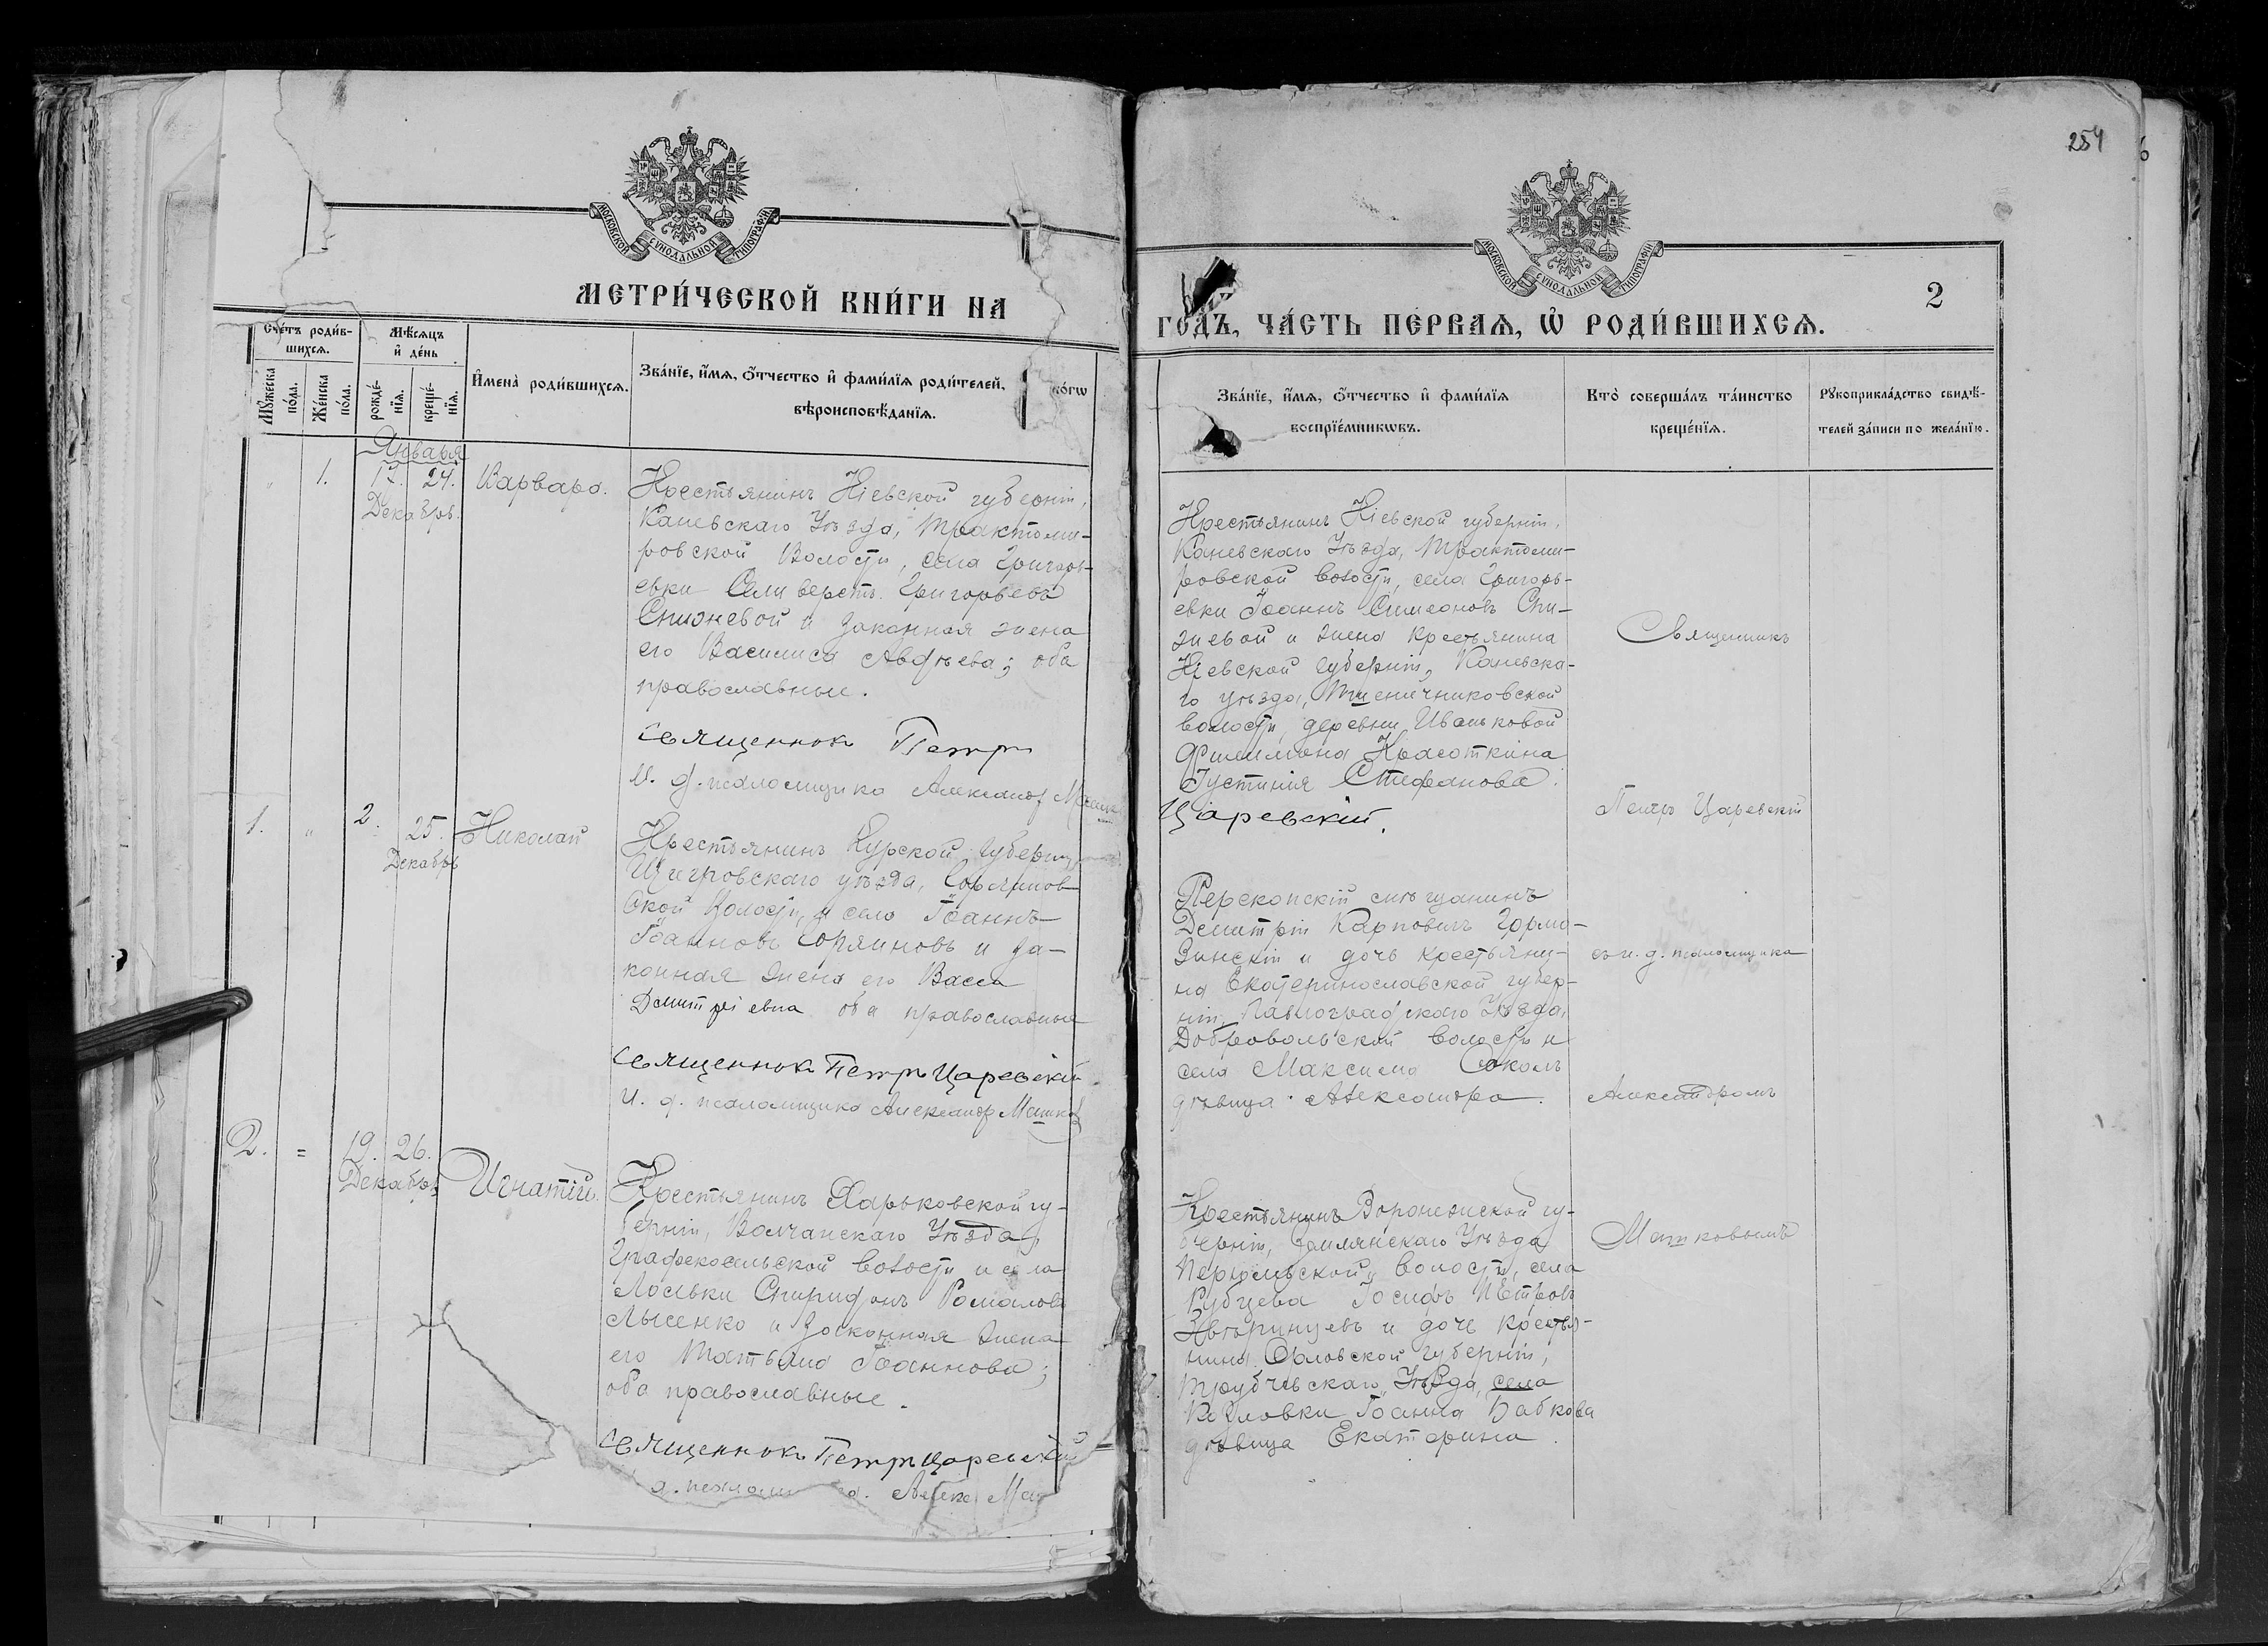 254
МОСКОВСКОЙ СѴНОДАЛЬНОЙ ТИПОГРАФІИ
МЕТРИ́ЧЕСКОЙ КНИ́ГИ НА
Сче́тъ роди́в-
шихсѧ.
Мѣ́сѧцъ
и҆ де́нь
Мꙋ́жеска
по́ла.
Же́нска
по́ла.
рожде́-
нїѧ.
креще́-
нїѧ.
И҆мена̀ роди́вшихсѧ.
Зва́нїе, и҆́мѧ, ѻ҆́тчество и҆ фами́лїѧ роди́телей,
вѣроисповѣ́данїѧ.
ко́гѡ
Января
1.
24.
Декабрь.
Варвара.
Крестьянинъ Кіевской губерніи,
Каневскаго Уѣзда, Трактоми-
ровской Волости, села Григорь-
евки Селиверстъ Григорьевъ
Спижевой и законная жена
его Василиса Авдѣева; оба
православные.
Священникъ Петръ
И. д. псаломщика Александр
1.
"
2.
25.
Декабрь
Николай
Крестьянинъ Курской губерніи
Щигровскаго уѣзда,
ской волости, и села Іоаннъ
Іоанновъ Горяиновъ и за-
конная жена его Васса
Дмитріевна оба православные
Священникъ Петръ Царевскій
И. д. псаломщика Александр Машков
2.
=
19.
26.
Декабрь
Игнатій.
Крестьянинъ Харьковской гу-
берніи, Волчанскаго Уѣзда,
Графскосельской волости и села
Лосевки Спиридонъ
Лысенко и законная жена
его Татьяна Іоаннова;
оба православные.
Священникъ Петръ Царевскій
МОСКОВСКОЙ СѴНОДАЛЬНОЙ ТИПОГРАФІИ
2
ГО́ДЪ, ЧА́СТЬ ПЕ́РВАѦ, Ѡ҆ РОДИ́ВШИХСѦ.
Зва́нїе, и҆́мѧ, ѻ҆́тчество и҆ фами́лїѧ
воспрїе́мникѡвъ.
Кто̀ соверша́лъ та́инство
креще́нїѧ.
Рꙋкоприкла́дство свидѣ́-
телей за́писи по жела́нїю.
Крестьянинъ Кіевской губерніи,
Каневскаго Уѣзда, Трактоми-
ровской волости, села Григорь-
евки Іоаннъ Симеоновъ Спи-
жевой и жена крестьянина
Кіевской губерніи, Каневска-
го уѣзда, Пшеничниковской
волости, деревни Ивановой
Филимона Красоткина
Іустинія Стефанова.
Царевскій.
Перекопскій мѣщанинъ
Дмитрій Карповичъ Горма-
зинскій и дочь крестьяни-
на Екатеринославской губер-
ніи, Павлоградскаго Уѣзда,
Добровольской волости и
села Максима Соколъ
дѣвица Александра.
Крестьянинъ Воронежской гу-
берніи, Землянскаго Уѣзда
волости, села
Рубцева Іосифъ Петровъ
и дочь крестья-
нина Орловской губерніи,
Трубчевскаго Уѣзда, села
Козловки Іоанна Бабкова
дѣвица Екатерина.
Священникъ
Петръ Царевскій
съ и. д. псаломщика
Александромъ
Машковымъ